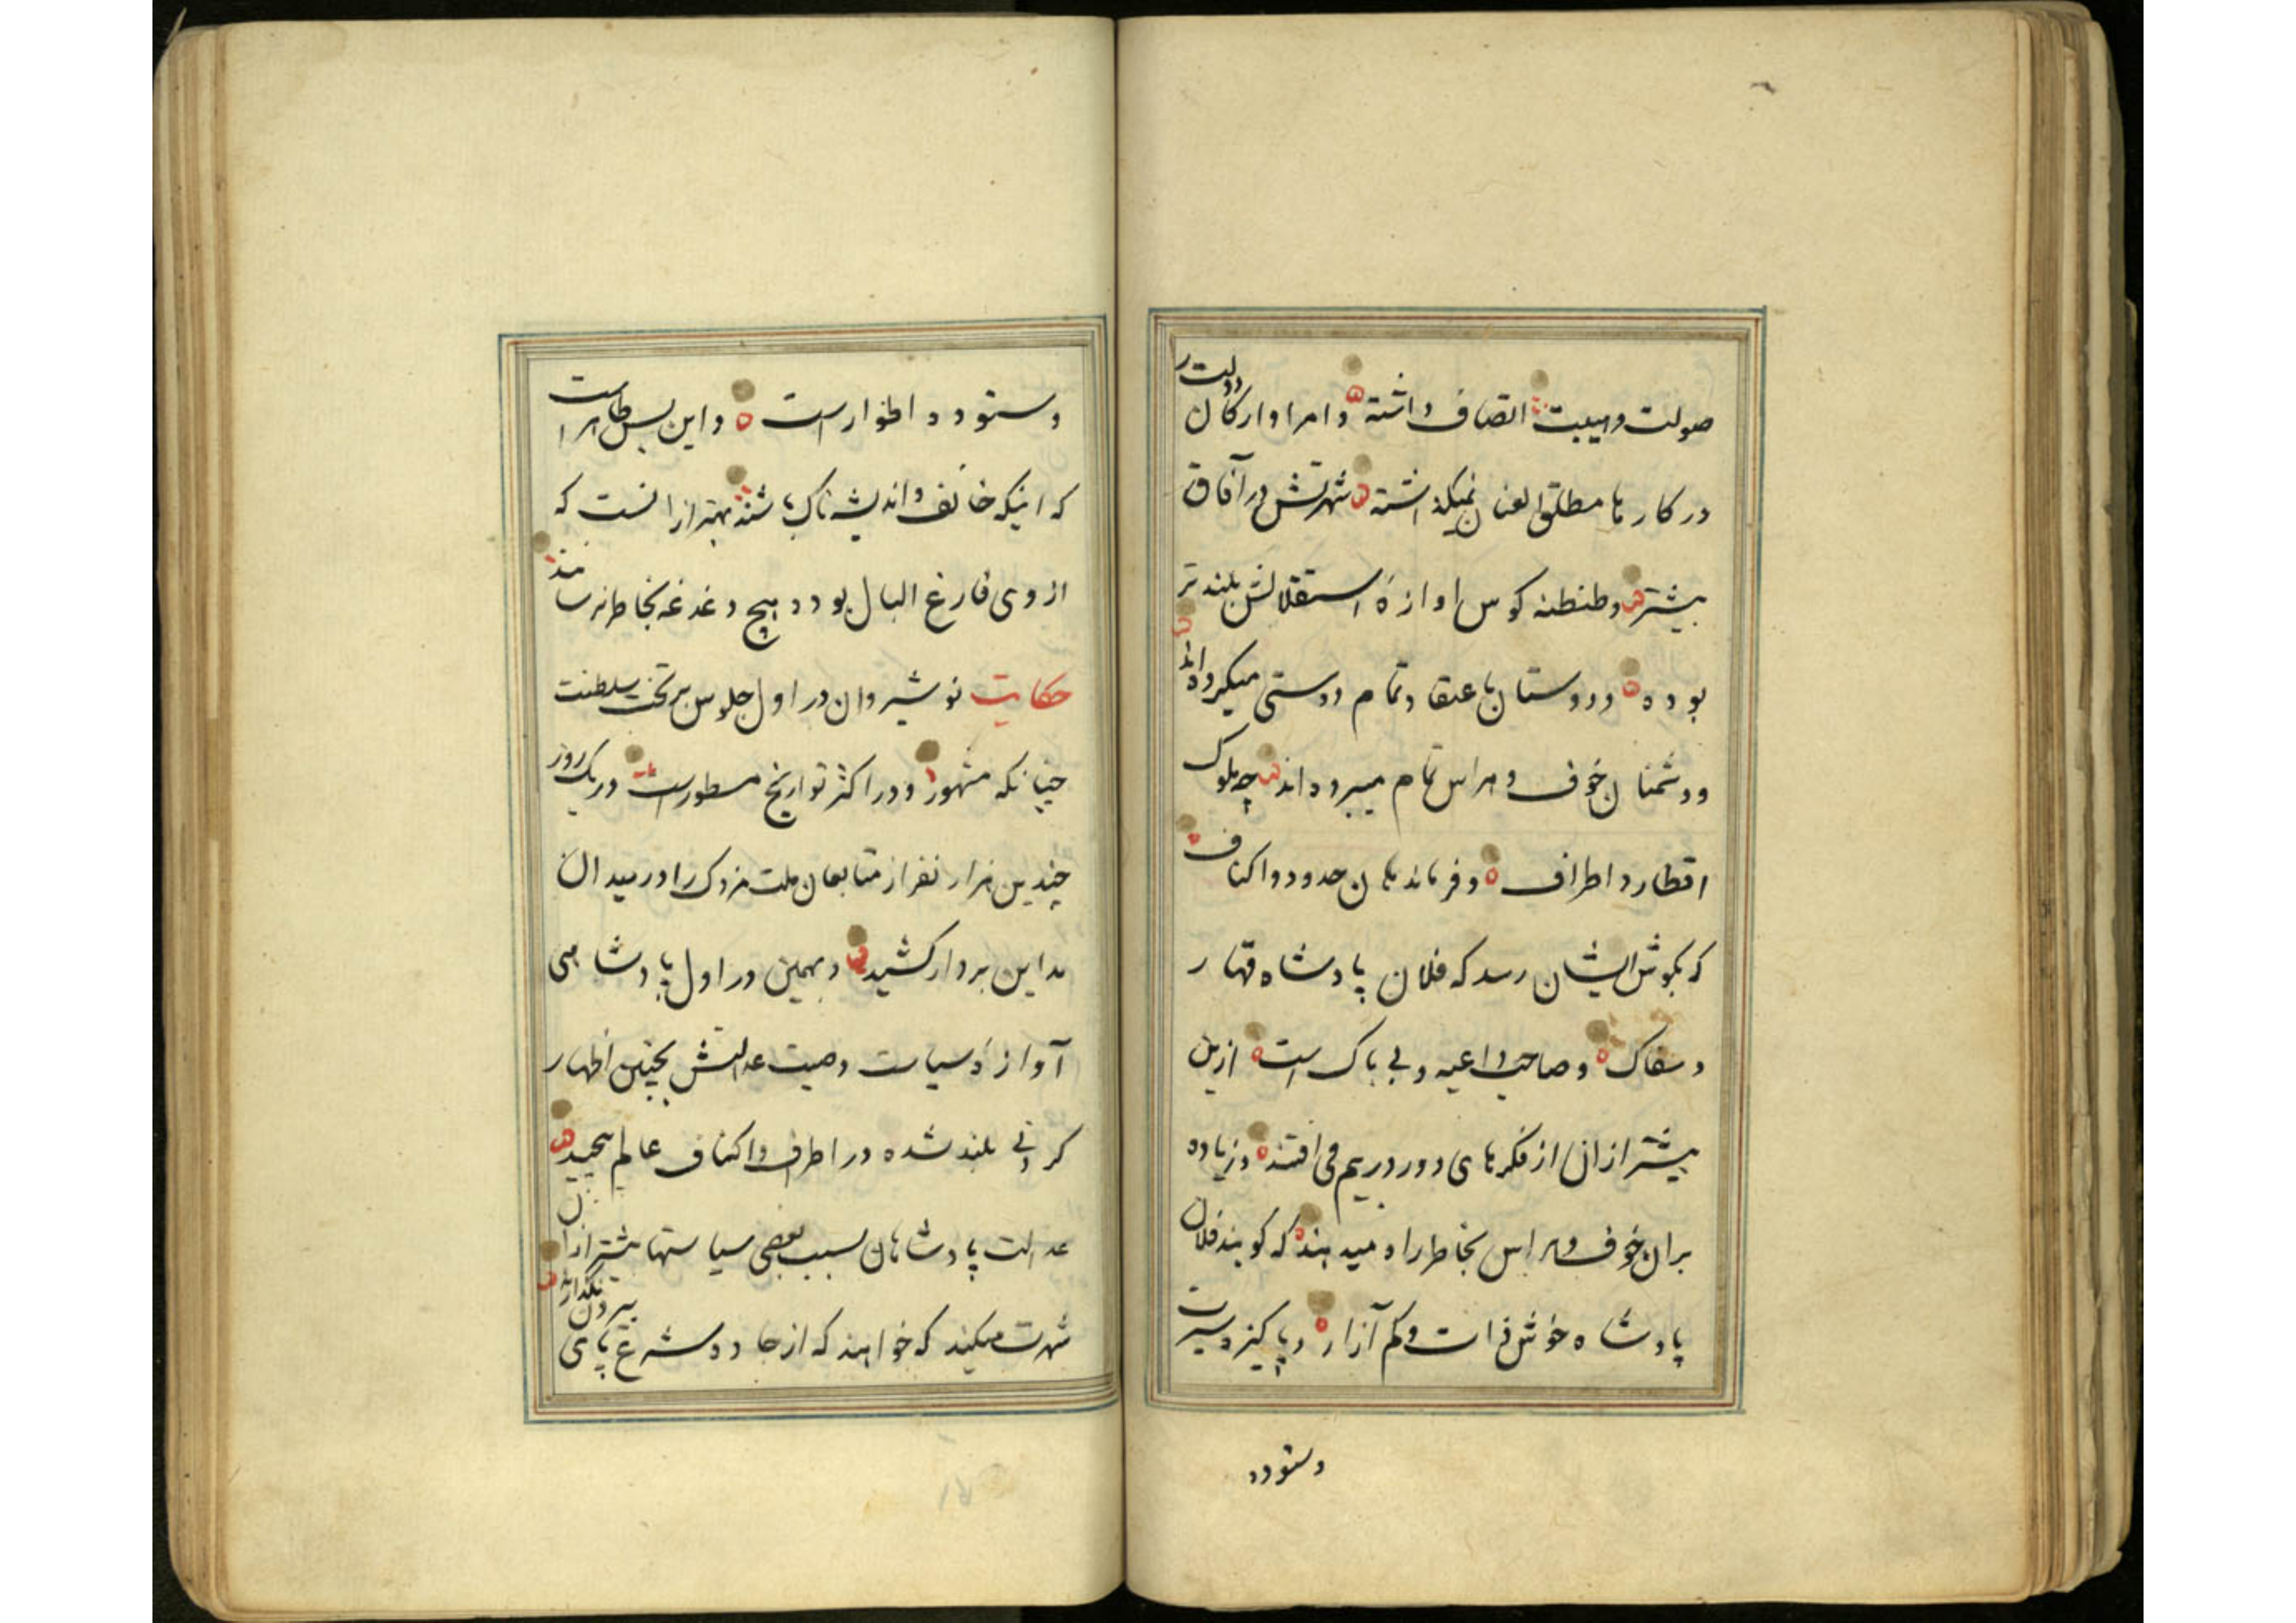 صولت و هیبت اتصاف داشته و امرا و ارکان دولت را
در کارها مطلق العنان نمیکذاشته شهرتش در آفاق
بیشتر و طنطنه کوس اوازهٔ استقلالش بلندتر
بوده و دوستان باعتقاد تمام دوستی میکرده‌اند
و دشمنان خوف و هراس تمام میبرده‌اند چه ملوک
اقطار و اطراف و فرماندهان حدود و اکناف
که بکوش ایشان رسد که فلان پادشاه قهار
و سفاک و صاحب داعیه و بی باک است ازین
بیشتر ازان از فکرهای دور و دریم می افتند و زیاده
بران خوف و هراس بخاطر راه میدهند که کویند فلان
پادشاه خوش ذات و کم آزار و پاکیزه سیرت
وستوده
وستوده اطوار است و این بس ظاهر است
که اینکه خائف و اندیشه ناک باشند بهتر ازانست که
از وی فارغ البال بوده هیچ دغدغه بخاطر نرسانند
حکایت نوشیروان در اول جلوس بر تخت سلطنت
چنانکه مشهور و در اکثر تواریخ مسطور است در یک روز
چندین هزار نفر از متابعان ملت مزدک را در میدان
مداین بر دار کشید و بهمین در اول پادشاهی
آوازهٔ سیاست وصیت عدالتش بچنین اظهار
کردنی بلند شده در اطراف و اکناف عالم پیچید
عدالت پادشاهان بسبب بعضی سیاستها بیشتر ازان
شهرت میکند که خواهند که از جاده شرع پای بیرون نگذارند